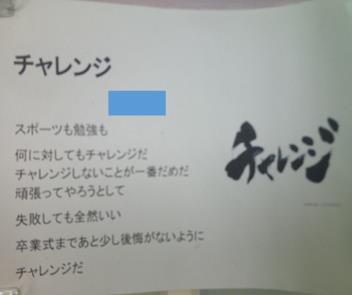 チャレンジ
スポーツも勉強も
何に対してもチャレンジだ
チャレンジしないことが一番だめだ
頑張ってやろうとして
失敗しても全然いい
卒業式まであと少し後悔がないように
チャレンジだ
チャレンジ